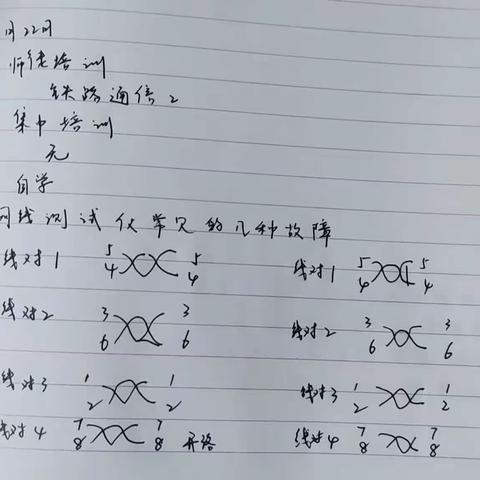 月22日
师徒培训
铁路通信2
集中培训
无
自学
网线测试仪常见的几种故障
线对1 5 4 5 4 线对1 5 4 5 4
线对2 3 6 3 6 线对2 3 6 3 6
线对3 1 2 1 2 线对3 1 2 1 2
线对4 7 8 7 8 开路 线对4 7 8 7 8